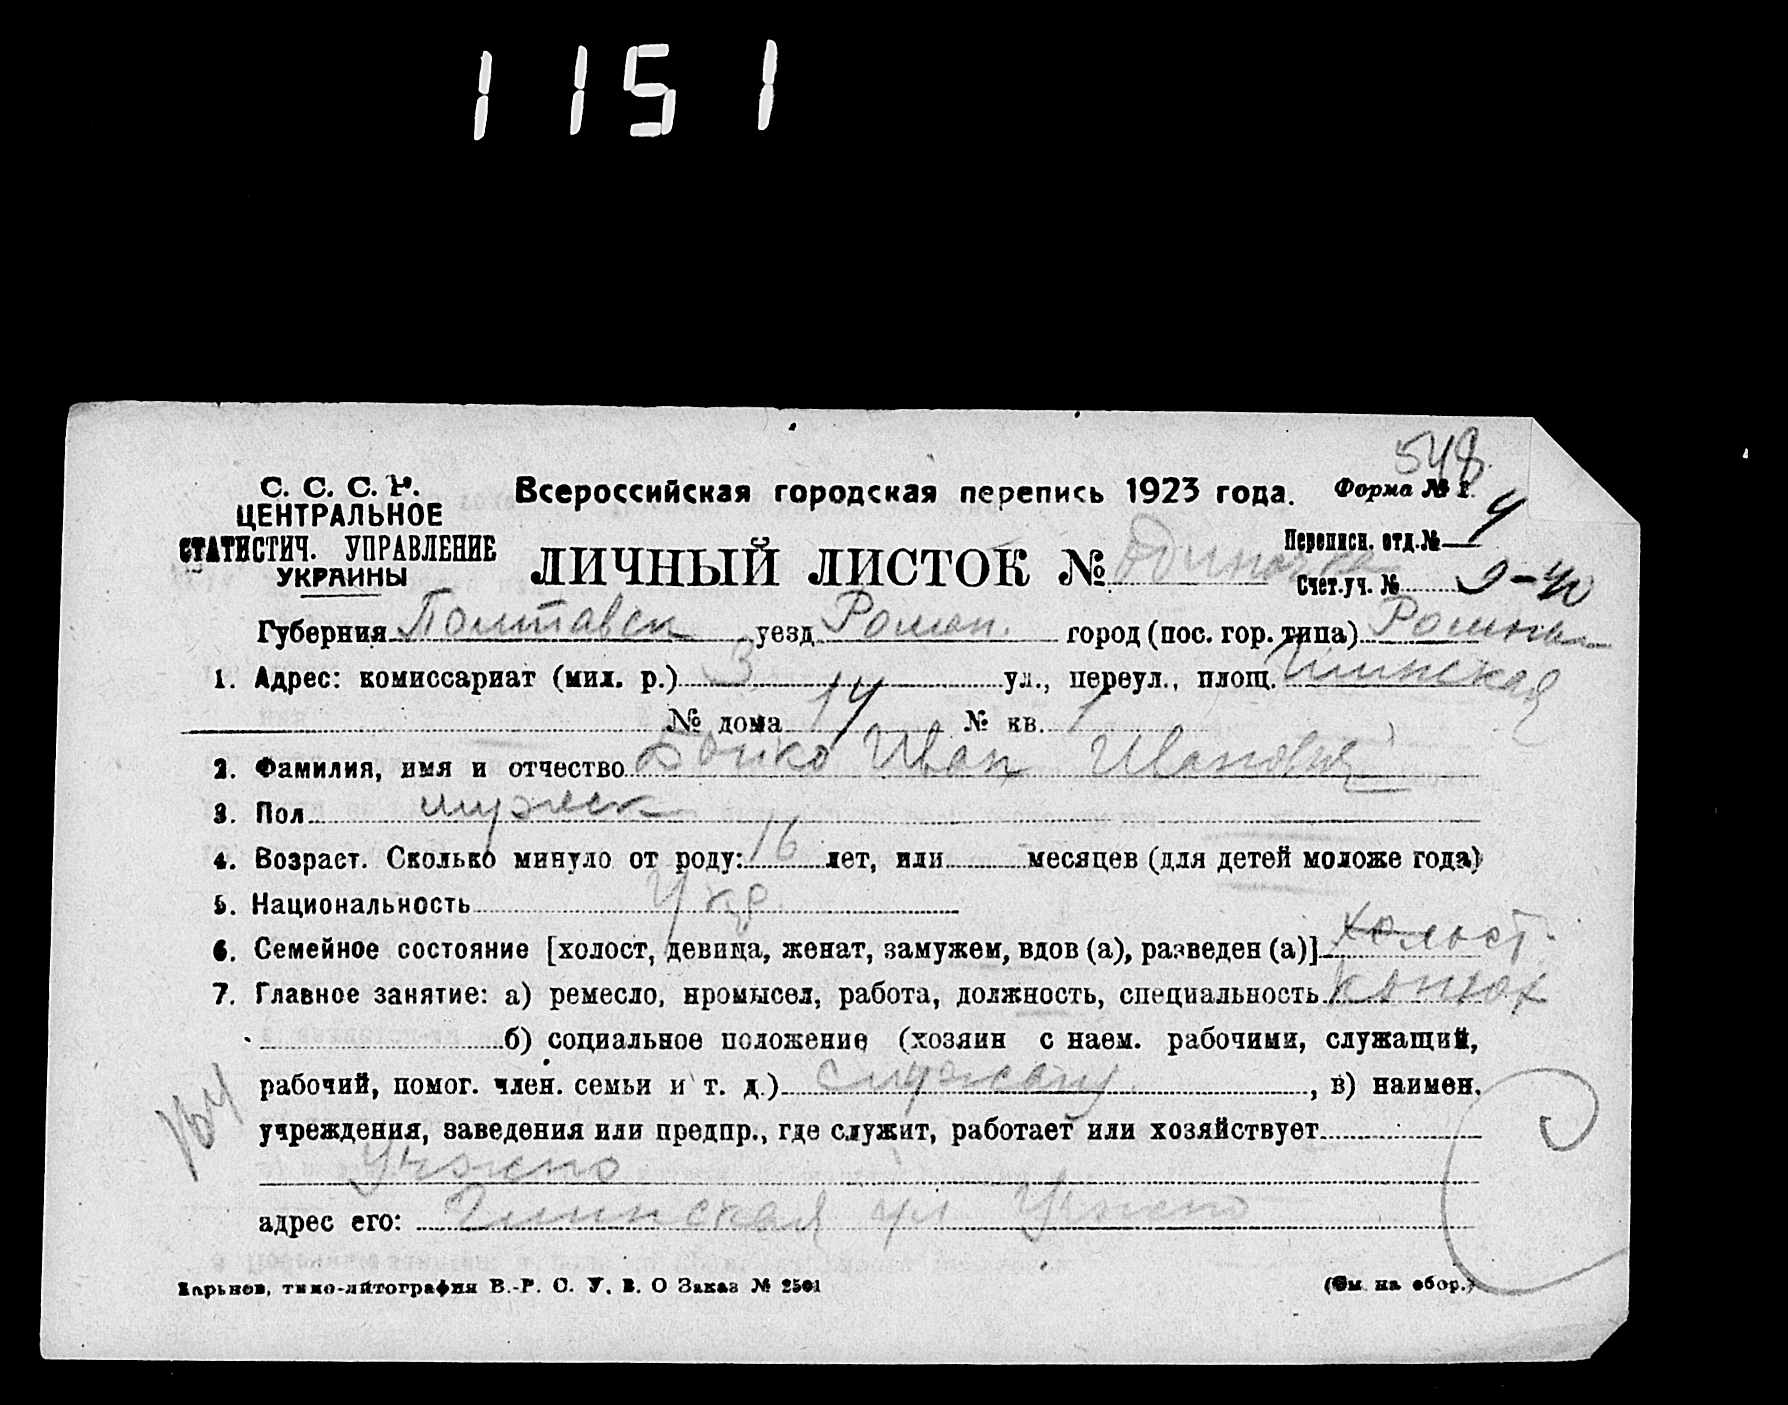 1151
548
С. С. С. Р.
ЦЕНТРАЛЬНОЕ
СТАТИСТИЧ. УПРАВЛЕНИЕ
УКРАИНЫ
Всероссийская городская перепись 1923 года.
Форма № 1.
ЛИЧНЫЙ ЛИСТОК № одиночка
Переписн. отд. № 4
Счет. уч. №
Губерния Полтавск уезд Ромен. город (пос. гор. типа) Ромны
1. Адрес: комиссариат (мил. р.) 3 ул., переул., площ. Глинская
№ дома 14 № кв. 1
2. Фамилия, имя и отчество Бойко Иван Иванович
3. Пол мужск
4. Возраст. Сколько минуло от роду: 16 лет, или месяцев (для детей моложе года)
5. Национальность Укр.
6. Семейное состояние [холост, девица, женат, замужем, вдов (а), разведен (а)] холост.
7. Главное занятие: а) ремесло, промысел, работа, должность, специальность конюх
б) социальное положение (хозяин с наем. рабочими, служащий,
рабочий, помог. член. семьи и т. д.) служащ. , в) наимен.
учреждения, заведения или предпр., где служит, работает или хозяйствует
адрес его: Глинская ул
Харьков, типо-литография В.-Р. С. У. В. О Заказ № 2501
(См. на обор.)